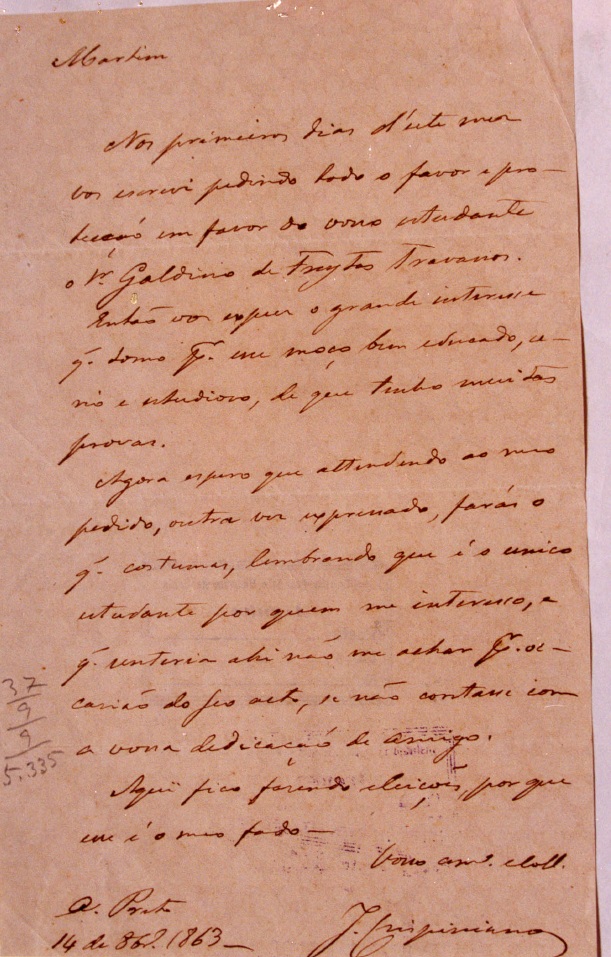 Martim
Nos primeiros dias d'este mez
vos escrevi pedindo todo o favor e pro-
tecçaõ em favor do vosso estudante
o Sr. Galdino de Freytas Travassos.
Então vos expuz o grande interesse
q. tomo pr. esse moço bem educado, se-
rio e estudioso, de que tenho muitas
provas.
Agora espero que attendendo ao meu
pedido, outra vez expressado, farás o
q. costumas, lembrando que é o unico
estudante por quem me interesso, e
q. sentiria ahi não me achar pr. oc-
casiaõ do seo acto, se não contasse com
a vossa dedicacaõ de Amigo.
Aqui fico fazendo eleições, por que
esse é o meo fado—
Vosso amo. e coll.
J. Crispiniano
14 de 8br. 1863—
37
9
9
5.335